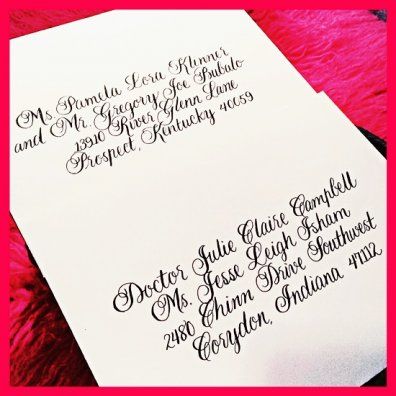 Ms. Pamela Lora Klenner
and Mr. Gregory Joe Bubalo
13910 River Glenn Lane
Prospect, Kentucky 40059
Doctor Julie Claire Campbell
Ms. Jesse Leigh Isham
2480 Chinn Drive Southwest
Corydon, Indiana 47112